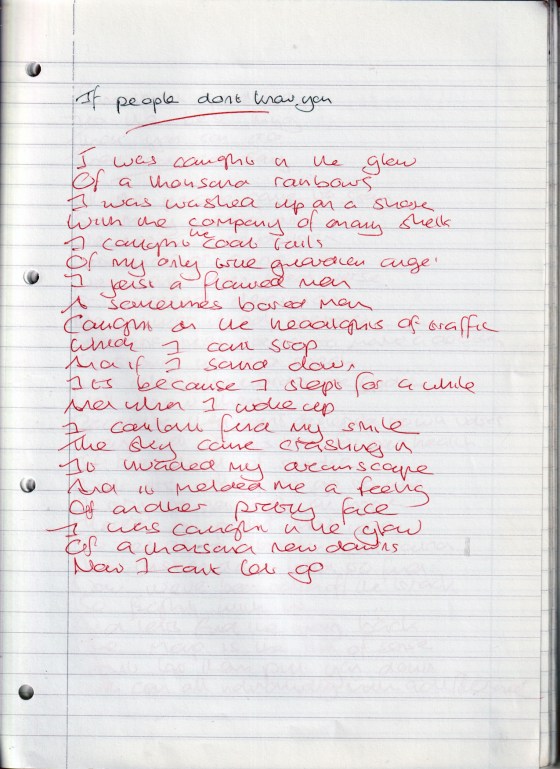 If people dont know you
I was caught in the glow
Of a thousand rainbows
I was washed up on a shore
With the company of many shells
I caught the coat tails
Of my only true guardian angel
I persist a flawed man
A sometimes bored man
Caught in the headlights of traffic
Which I cant stop
And if I sand down
Its because I slept for a while
And when I woke up
I couldnt find my smile
The sky came crashing in
It invaded my dreamscape
And it melded me a feeling
Of another pretty face
I was caught in the glow
Of a thousand new dawns
Now I cant let go